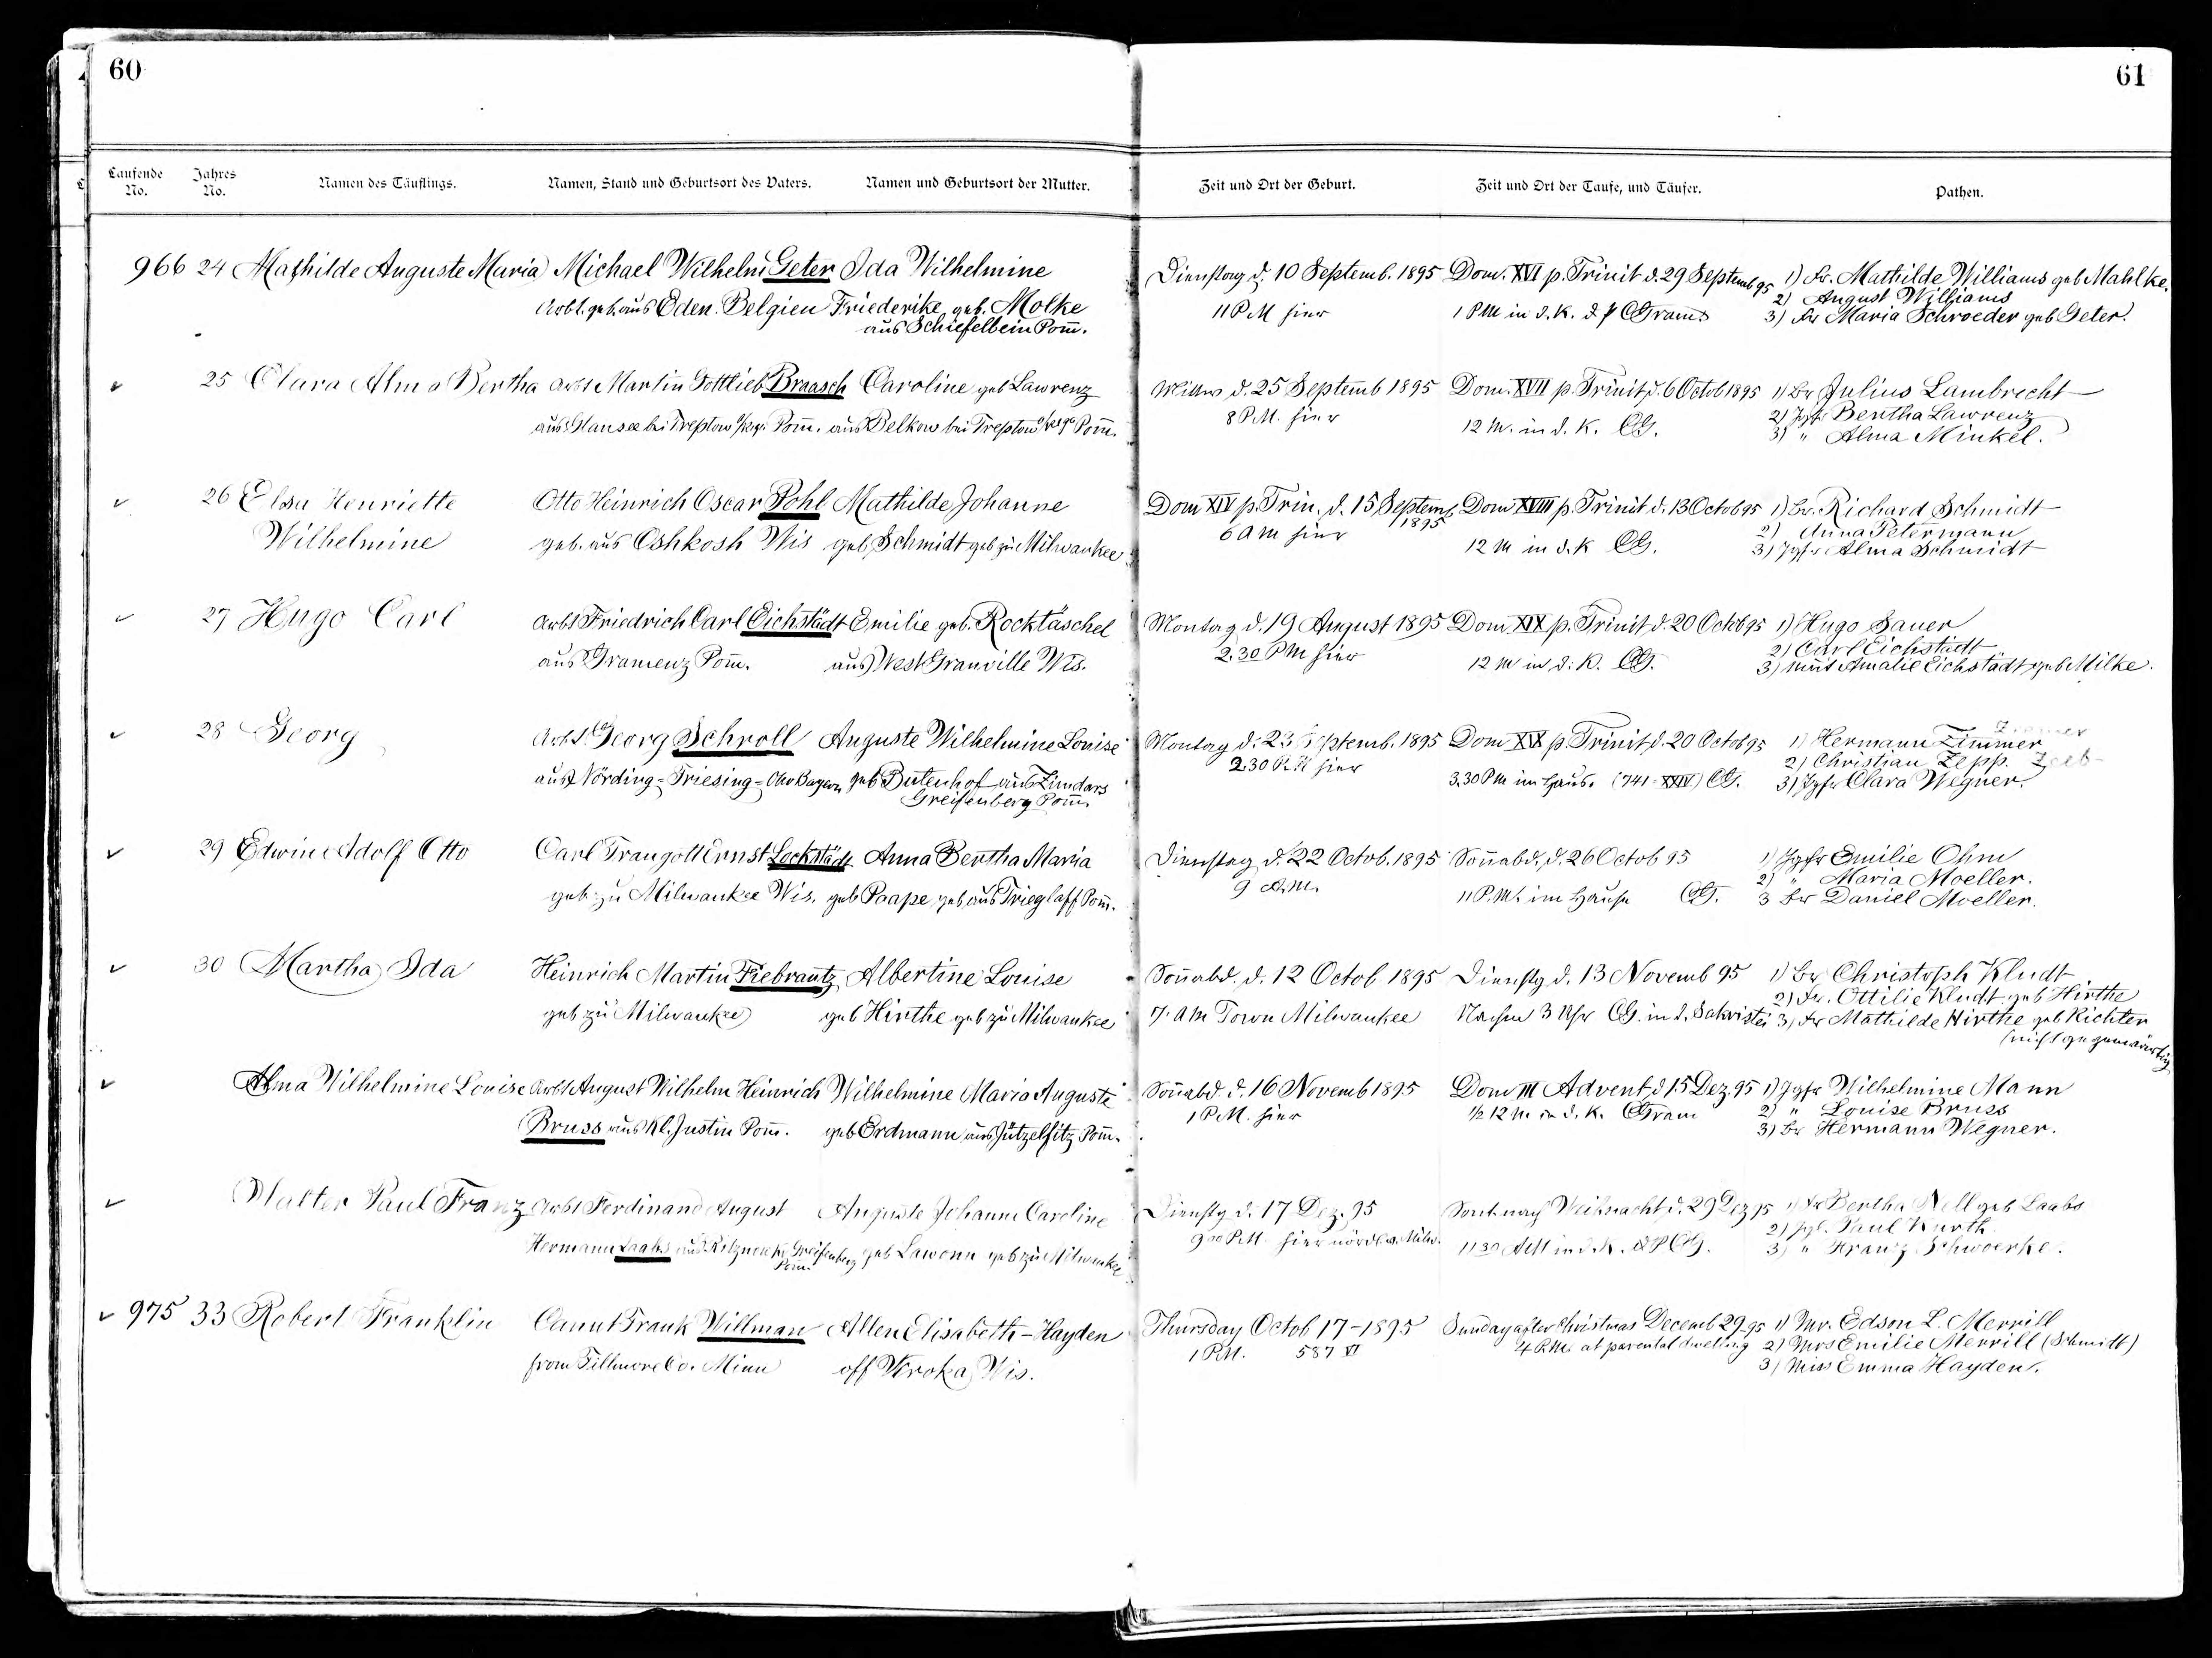 60
61
Laufende No.
Jahres No.
Namen des Täuflings.
Namen, Stand und Geburtsort des Vaters.
Namen und Geburtsort der Mutter.
Zeit und Ort der Geburt.
Zeit und Ort der Taufe, und Täufer.
Pathen.
966 24 Mathilde Auguste Maria Michael Wilhelm Geter Ida Wilhelmine
Arbt. geb. aus Eden. Belgien Friederike geb. Molke
aus Schiefelbein Pom̄.
Dienstag d. 10 Septemb. 1895 Dom. XVI p. Trinit d. 29 Septemb 95 1) Fr. Mathilde Williams geb Mahlke.
2) August Williams
11 PM hier 1 PM in d. K. d P CGrams 3) Fr Maria Schroeder geb Geter.
25 Clara Alma Bertha Arbt Martin Gottlieb Braasch Caroline geb Lawrenz
aus Hansee bei Treptow Pom̄. aus Belkow bei Treptow Pom̄.
Mittw d. 25 Septemb 1895 Dom. XVII p. Trinit d. 6 Octob 1895 1) Hr Julius Lambrecht
8 P.M. hier 12 M. in d. K. CG. 2) Jgfr Bertha Lawrenz
3) " Alma Minkel.
26 Elsa Henriette Otto Heinrich Oscar Pohl Mathilde Johanne
Wilhelmine geb. aus Oshkosh Wis geb Schmidt geb zu Milwaukee
Dom XIV p. Trin. d. 15 Septemb 1895 Dom XVIII p. Trinit d. 13 Octob 95 1) Hr. Richard Schmidt
6 AM hier 12 M in d. K CG. 2) Anna Petermann
3) Jgfr Alma Schmidt
27 Hugo Carl Arbt Friedrich Carl Eichstädt Emilie geb. Rocktäschel
aus Gramenz Pom̄. aus West Granville Wis.
Montag d. 19 August 1895 Dom XIX p. Trinit d. 20 Octob 95 1) Hugo Sauer
2) Carl Eichstädt
2.30 PM hier 12 M in d. K. CG. 3) Amalie Eichstädt geb Milke.
28 Georg Arbt. Georg Schroll Auguste Wilhelmine Louise
aus Nörding-Friesing- Bayern geb Butenhof aus Zimdars
Greifenberg Pom̄.
Montag d. 23 Septemb. 1895 Dom XIX p. Trinit d. 20 Octob 95 1) Hermann Zimmer
2) Christian Zepp.
2.30 P.M hier 3.30 PM im Haus. (741-XXIV) CG. 3) Jgfr Clara Wegner.
29 Edwin Adolf Otto Carl Traugott Ernst Lockstädt Anna Bertha Maria
geb. zu Milwaukee Wis. geb Paape geb aus Trieglaff Pom̄.
Dienstag d. 22 Octob. 1895 Son̄abd. d. 26 Octob 95 1) Jgfr Emilie Ohm
2) " Maria Moeller.
9 A.M. 11 P.M. im Hause CG. 3 Hr Daniel Moeller.
30 Martha Ida Heinrich Martin Fiebrantz Albertine Louise
geb zu Milwaukee geb Hirthe geb zu Milwaukee
Son̄abd. d. 12 Octob 1895 Dienstg d. 13 Novemb 95 1) Hr Christoph Kludt
2) Fr. Ottilie Kludt geb Hirthe
7. AM Town Milwaukee Nachm 3 Uhr CG. in d. Sakristei 3) Fr Mathilde Hirthe geb Richter
(nicht gegenwärtig
Alma Wilhelmine Louise Arbt August Wilhelm Heinrich Wilhelmine Maria Auguste
Bruss aus Kl. Justin Pom̄. geb Erdmann aus Jützelfitz Pom̄.
Son̄abd. d. 16 Novemb 1895 Dom III Advent d 15 Dez. 95 1) Jgfr Wilhelmine Mann
1 P.M. hier ½ 12 M in d. K. CGram 2) " Louise Bruss
3) Hr Hermann Wegner.
Walter Paul Franz Arbt Ferdinand August Auguste Johanne Caroline
Hermann Laabs aus Greifenberg Pom. geb Lawenn geb zu Milwaukee
Dienstg d. 17 Dez. 95 Sont. nach Weihnacht d. 29 Dez 95 1) Fr Bertha Nell geb Laabs
2) Jgl. Paul Kurth
9 P.M. hier nördl. v. Milw. 11 30 AM in d. K. d P CG. 3) " Franz Schwoerke.
975 33 Robert Franklin Canut Frank Willman Allen Elisabeth-Hayden
from Fillmore Co. Minn off Viroka Wis.
Thursday Octob 17-1895 Sunday after Christmas Decemb 29.95 1) Mr. Edson L. Merrill
1 P.M. 587 VI 4 P.M. at parental dwelling 2) Mrs Emilie Merrill (Schmitt)
3) Miss Emma Hayden.